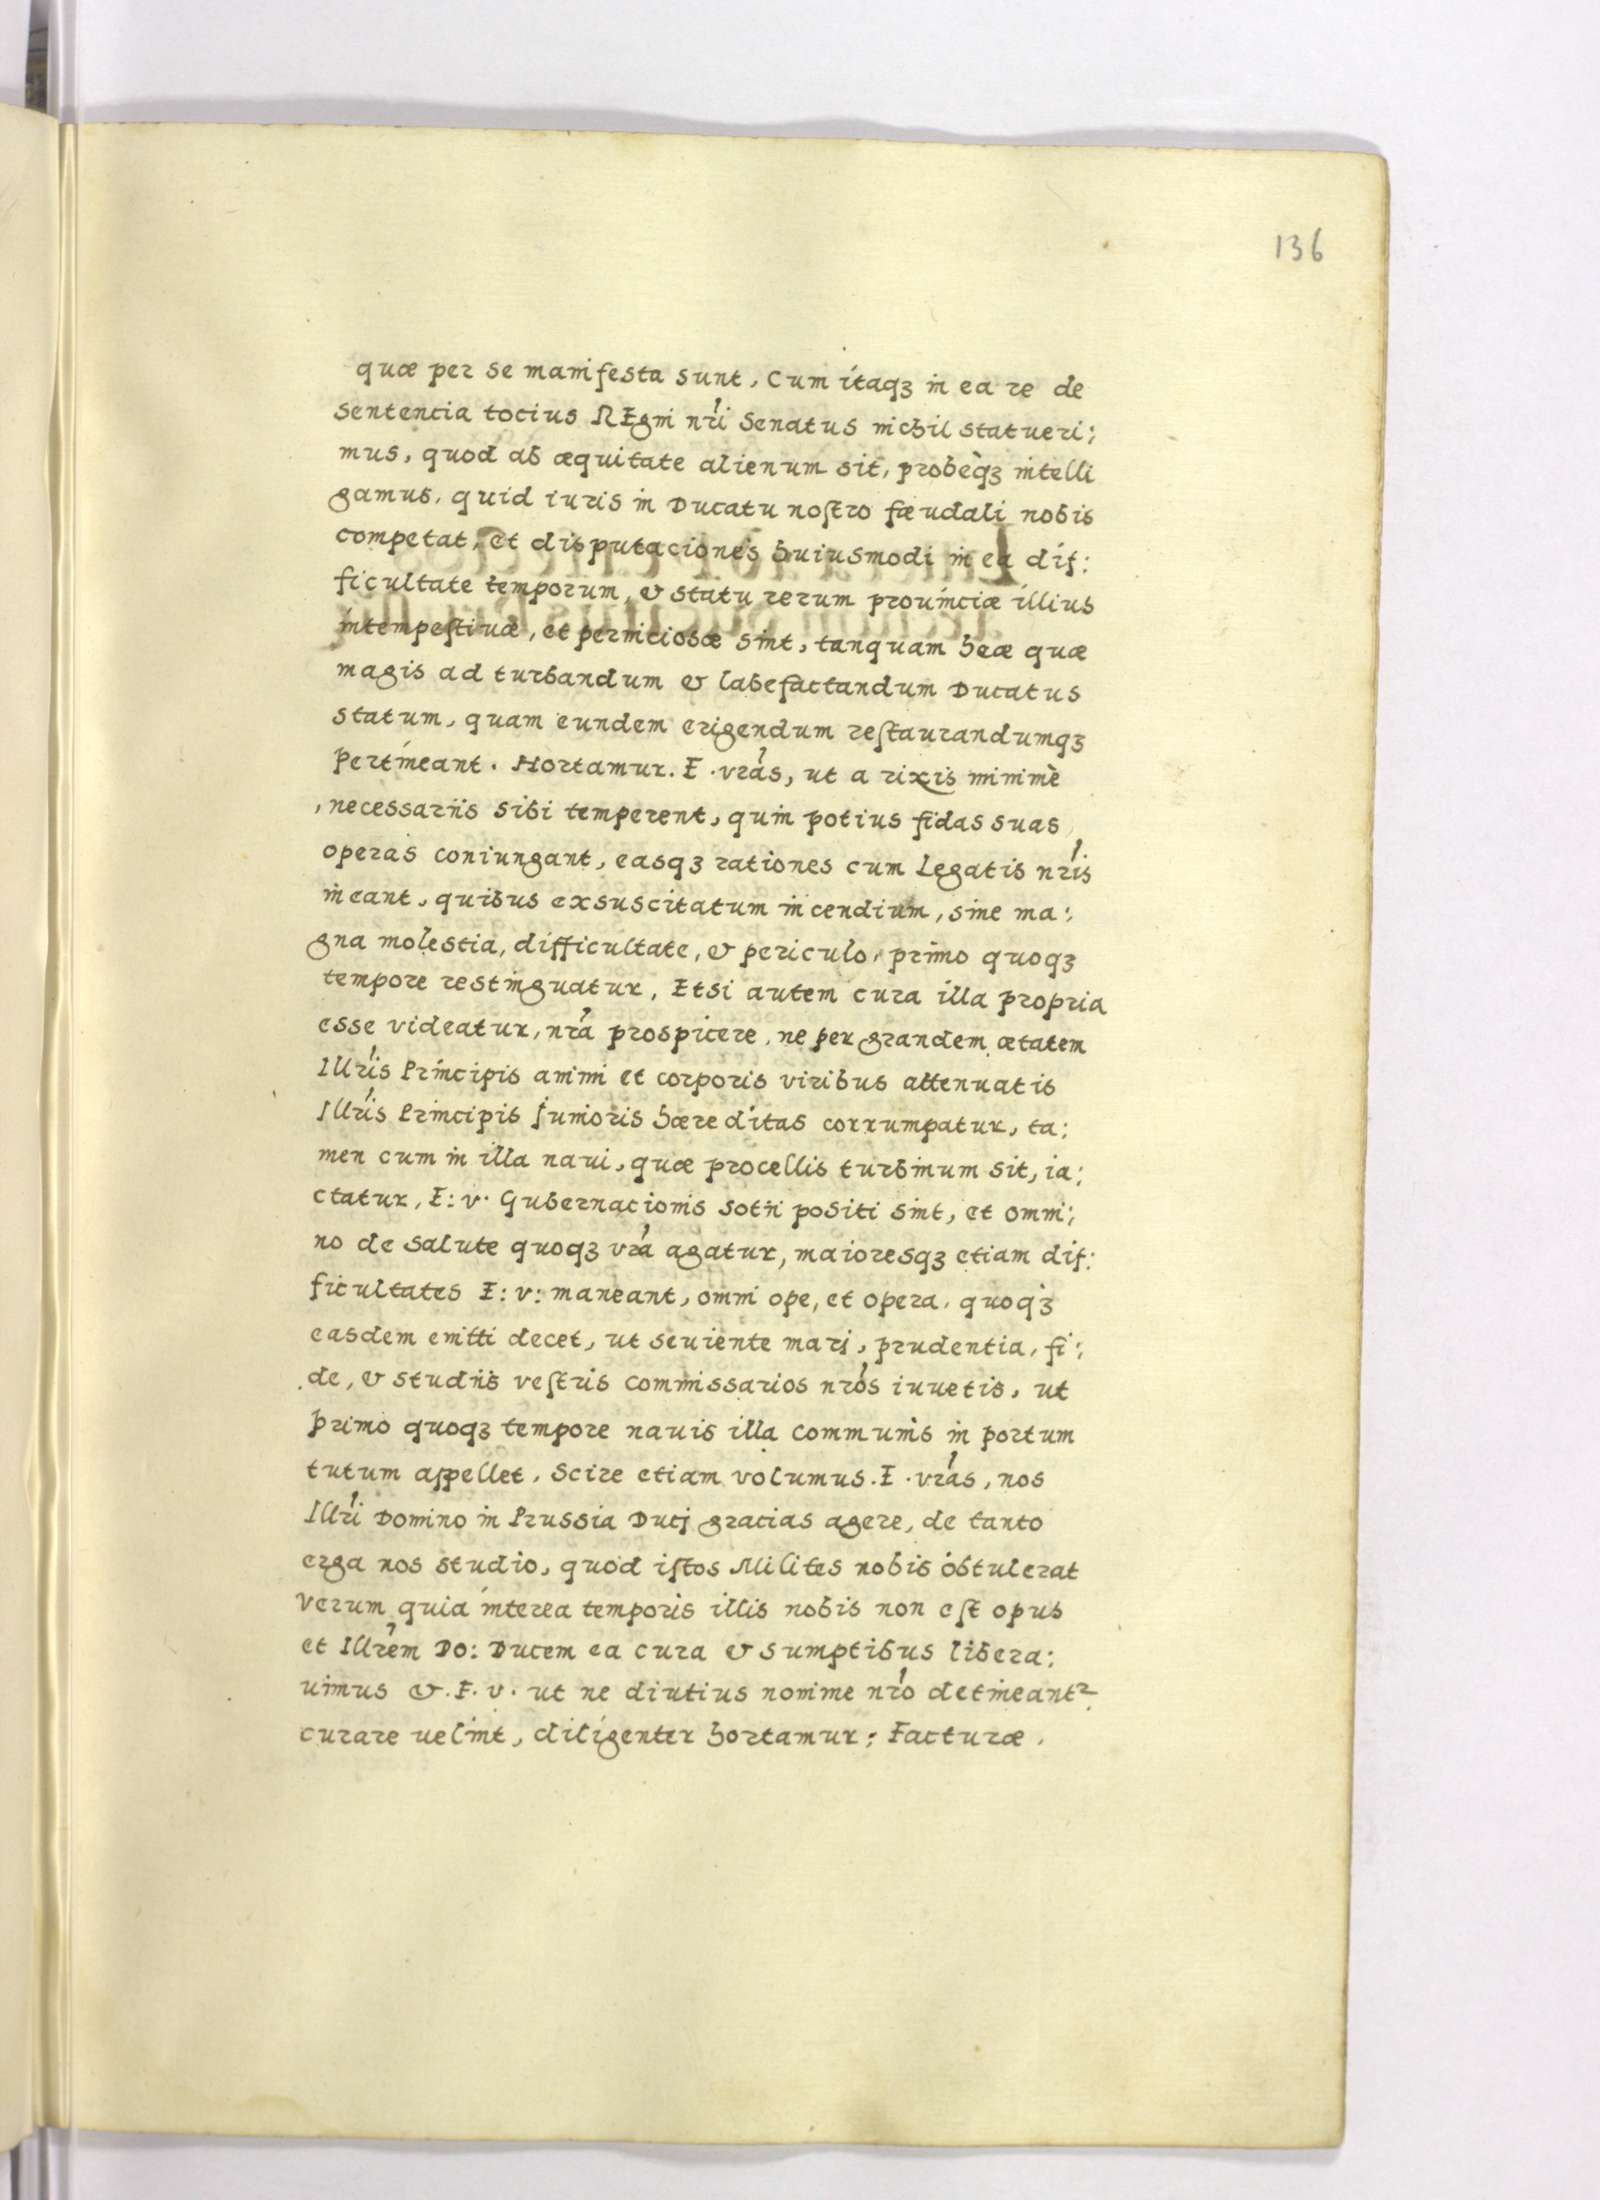 136
quæ per se manifesta sunt, Cum itaqꝫ in ea re de
sentencia tocius REgni nr̃i Senatus nichil statueri:
mus, quod ab æquitate alienum sit, probeqꝫ intelli
gamus, quid iuris in Ducatu nostro fæudali nobis
competat, et disputaciones huiusmodi in ea dif:
ficultate temporum, & statu rerum prouinciæ illius
intempestiuæ, et perniciosæ sint, tanquam heæ quæ
magis ad turbandum & labefactandum Ducatus
statum, quam eundem erigendum restaurandumqꝫ
pertineant. Hortamur. F. vr̃as, ut a rixis minimè
necessariis sibi temperent, quin potius fidas suas
operas coniungant, easqꝫ rationes cum Legatis nr̃is
ineant, quibus exsuscitatum incendium, sine ma:
gna molestia, difficultate, & periculo, primo quoqꝫ
tempore restinguatur, Etsi autem cura illa propria
esse videatur, nr̃a prospicere, ne per grandem ætatem
Illr̃is Principis animi et corporis viribus attenuatis
Illr̃is Principis Junioris hæreditas corrumpatur, ta:
men cum in illa naui, quæ procellis turbinum sit, ia:
ctatur, F: v. Gubernacionis sotii positi sint, et omni:
no de salute quoqꝫ vr̃a agatur, maioresqꝫ etiam dif:
ficultates F: v: maneant, omni ope, et opera, quoqꝫ
easdem enitti decet, ut seuiente mari, prudentia, fi:
de, & studiis vestris commissarios nr̃os iuuetis, ut
primo quoqꝫ tempore nauis illa communis in portum
tutum appellet. Scire etiam volumus. F. vr̃as, nos
Illr̃i Domino in Prussia Ducj gracias agere, de tanto
erga nos studio, quod istos Milites nobis obtulerat
Verum quia interea temporis illis nobis non est opus
et Illr̃em Do: Ducem ea cura & sumptibus libera:
uimus &. F. v. ut ne diutius nomine nr̃o detineantr
curare uelint, diligenter hortamur: Facturæ.